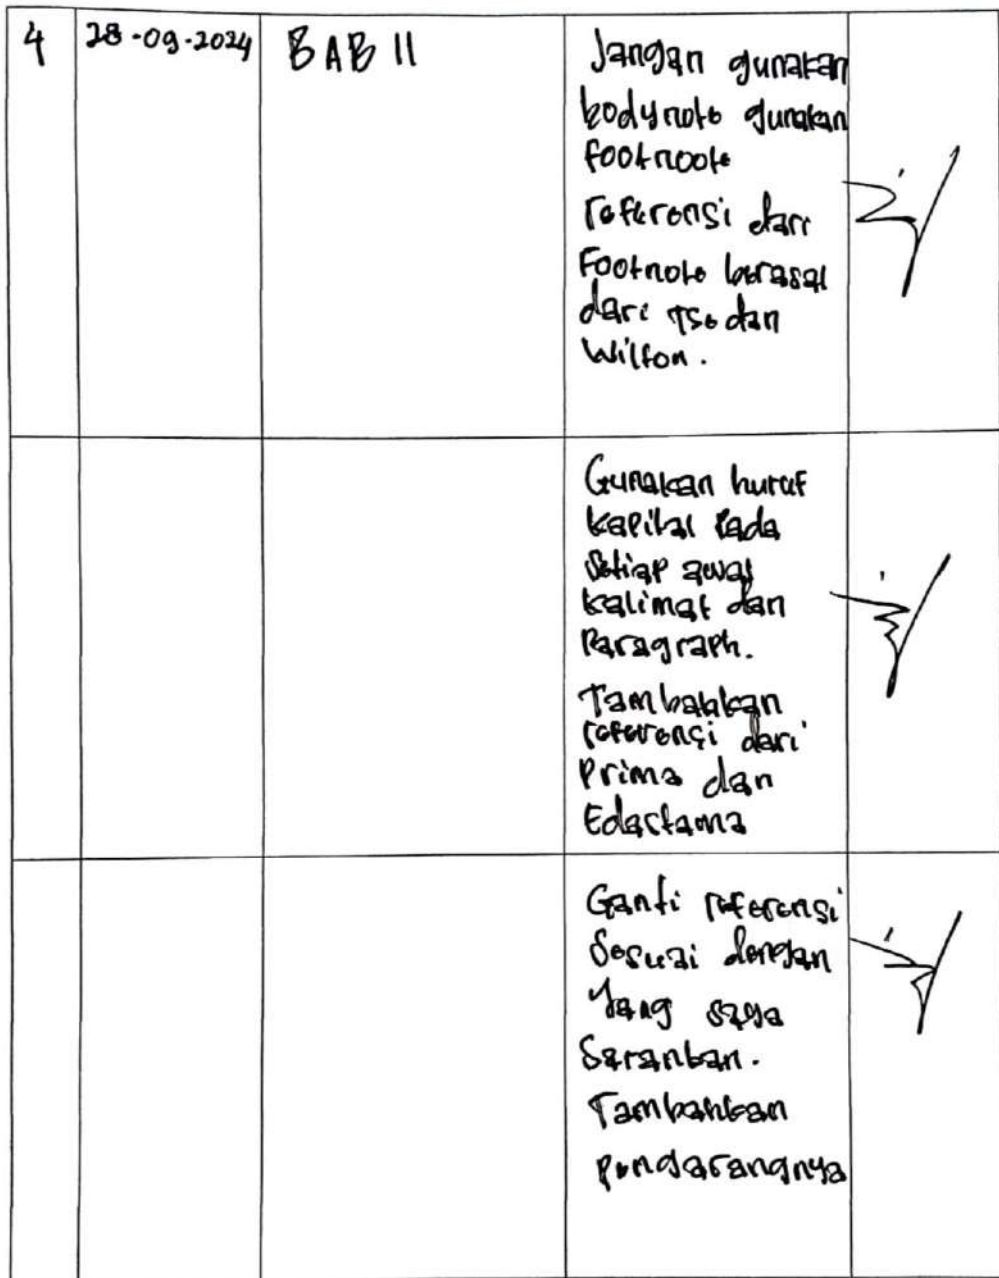 4 28-09-2024 BAB II Jangan gunakan
bodynote gunakan
footnoote
referensi dari
Footnote berasal
dari Tse dan
Wilson.
Gunakan huruf
kapital pada
setiap awal
kalimat dan
Paragraph.
Tambahkan
referensi dari
Prima dan
Edastama
Ganti referensi
Sesuai dengan
Yang saya
Sarankan.
Tambahkan
pengarangnya